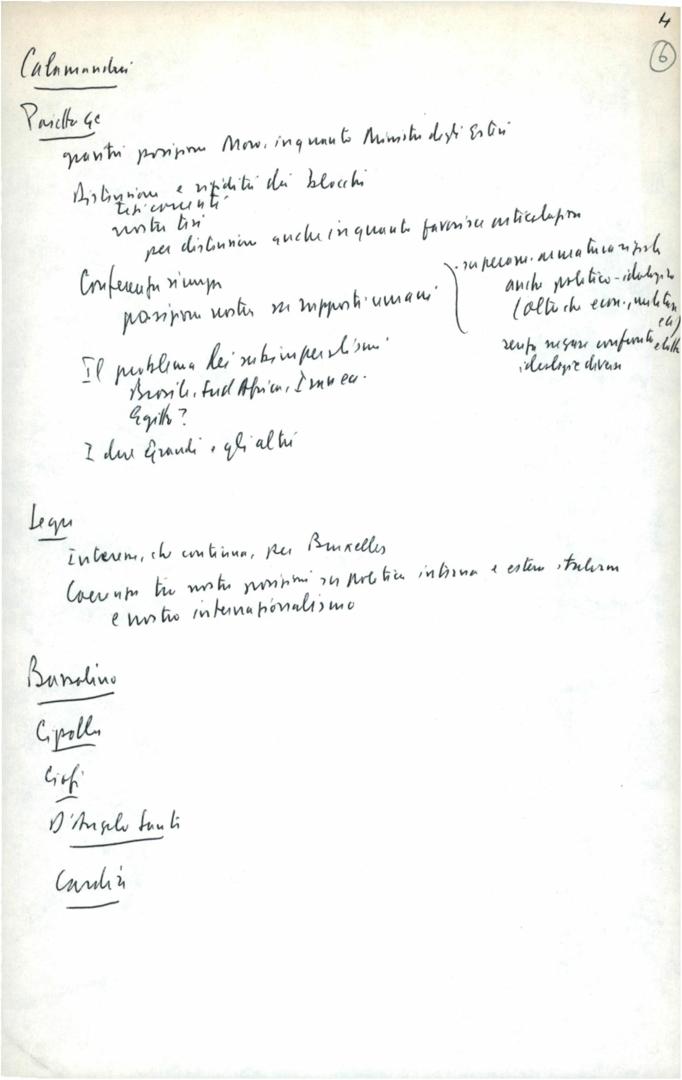 4
6
Calamandrei
Pajetta GC
posizione Moro, in quanto Ministro degli Esteri
Distinzione e rigidità dei blocchi
tesi correnti
nostra tesi
per distensione anche in quanto favorisce articolazione
Conferenza
posizione nostra su rapporti umani
anche politico-ideologica
(oltre che econ., militare
ecc)
senza negare confronto e lotta
ideologie diverse
Il problema dei subimperialismi
Brasile, Sud Africa, Iran ecc.
Egitto?
I due Grandi e gli altri
Segre
Interesse, che continua, per Bruxelles
Coerenza tra nostre posizioni su politica interna e estera italiana
e nostro internazionalismo
Bussolino
Cipolla
Ciofi
D'Angelo Sante
Cardia